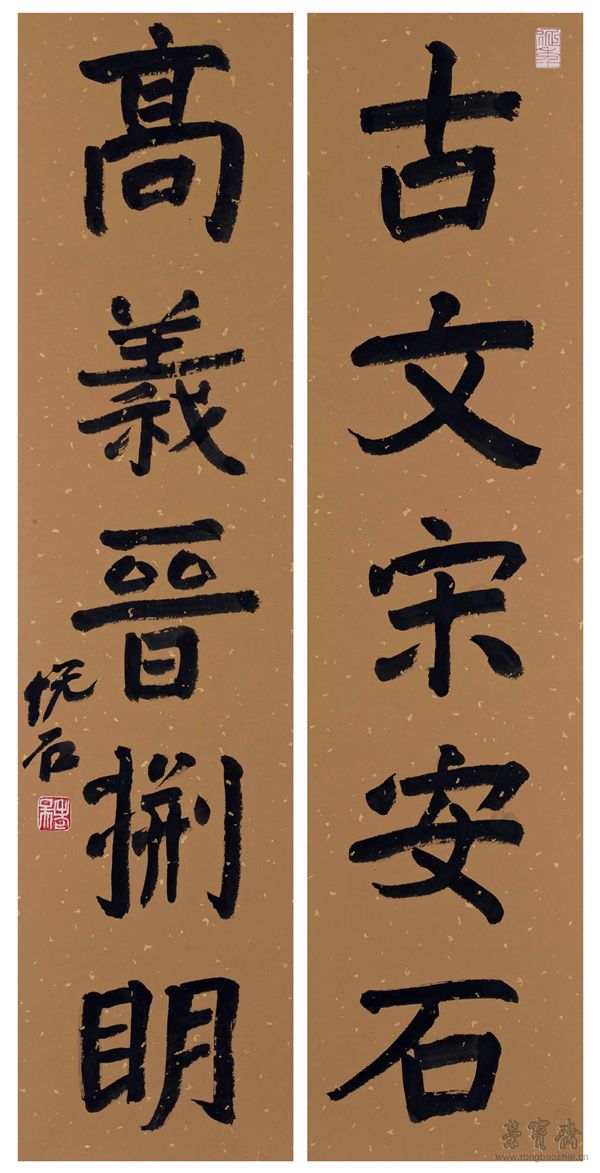 古文宋安石
高義晉淵明
悦石
榮寶齋
www.rongbaozhai.cn